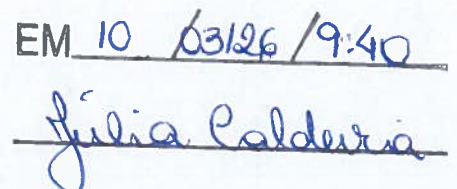 EM 10 /03/26 /9:40
Júlia Caldeira